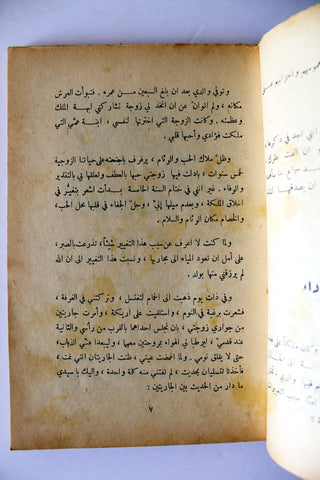 وتوفي والدي بعد ان بلغ السبعين من عمره . فتبوأت العرش
مكانه ، ولم اتوانَ عن ان اتخذ لي زوجة تشاركني ابهة الملك
وعظمته . وكانت الزوجة التي اخترتها لنفسي ، ابنة عمّي التي
ملكت فؤادي وأحبها قلبي .
وظلّ ملاك الحب والوئام ، يرفرف باجنحته على حياتنا الزوجية
خمس سنوات ، بادلت فيها زوجتي حبها بالعطف وتعلقها بي بالتقدير
والوفاء . غير انني في ختام السنة الخامسة بدأت اشعر بتغيُّر في
اخلاق الملكة ، وبعد ميلها إليّ . وحلّ الجفاء في قلبها محل الحب ،
والخصام مكان الوئام والسلام .
ولما كنت لا اعرف عن سبب هذا التغيير شيئاً ، تذرعت بالصبر ،
على أمل ان تعود المياه الى مجاريها ، ونسبت هذا التغيير الى ان الله
لم يرزقني منها بولد .
وفي ذات يوم ذهبت الى الحمّام لتغتسل ، وتركتني في الغرفة ،
فشعرت برغبة في النوم ، واستلقيت على اريكة ، وأمرت جاريتين
من جواري زوجتي ، بان تجلس احداهما بالقرب من رأسي والثانية
عند قدميّ ، ليرطبا لي الهواء بمروحتين معهما ، وليبعدا عنّي الذباب
حتى لا يقلق نومي . ولما اغمضت عيني ، ظنت الجاريتان انني نمت ،
فأخذتا تتسليان بحديث ، لم تفتني منه كلمة واحدة ، واليك يا سيدي
ما دار من الحديث بين الجاريتين :
٧